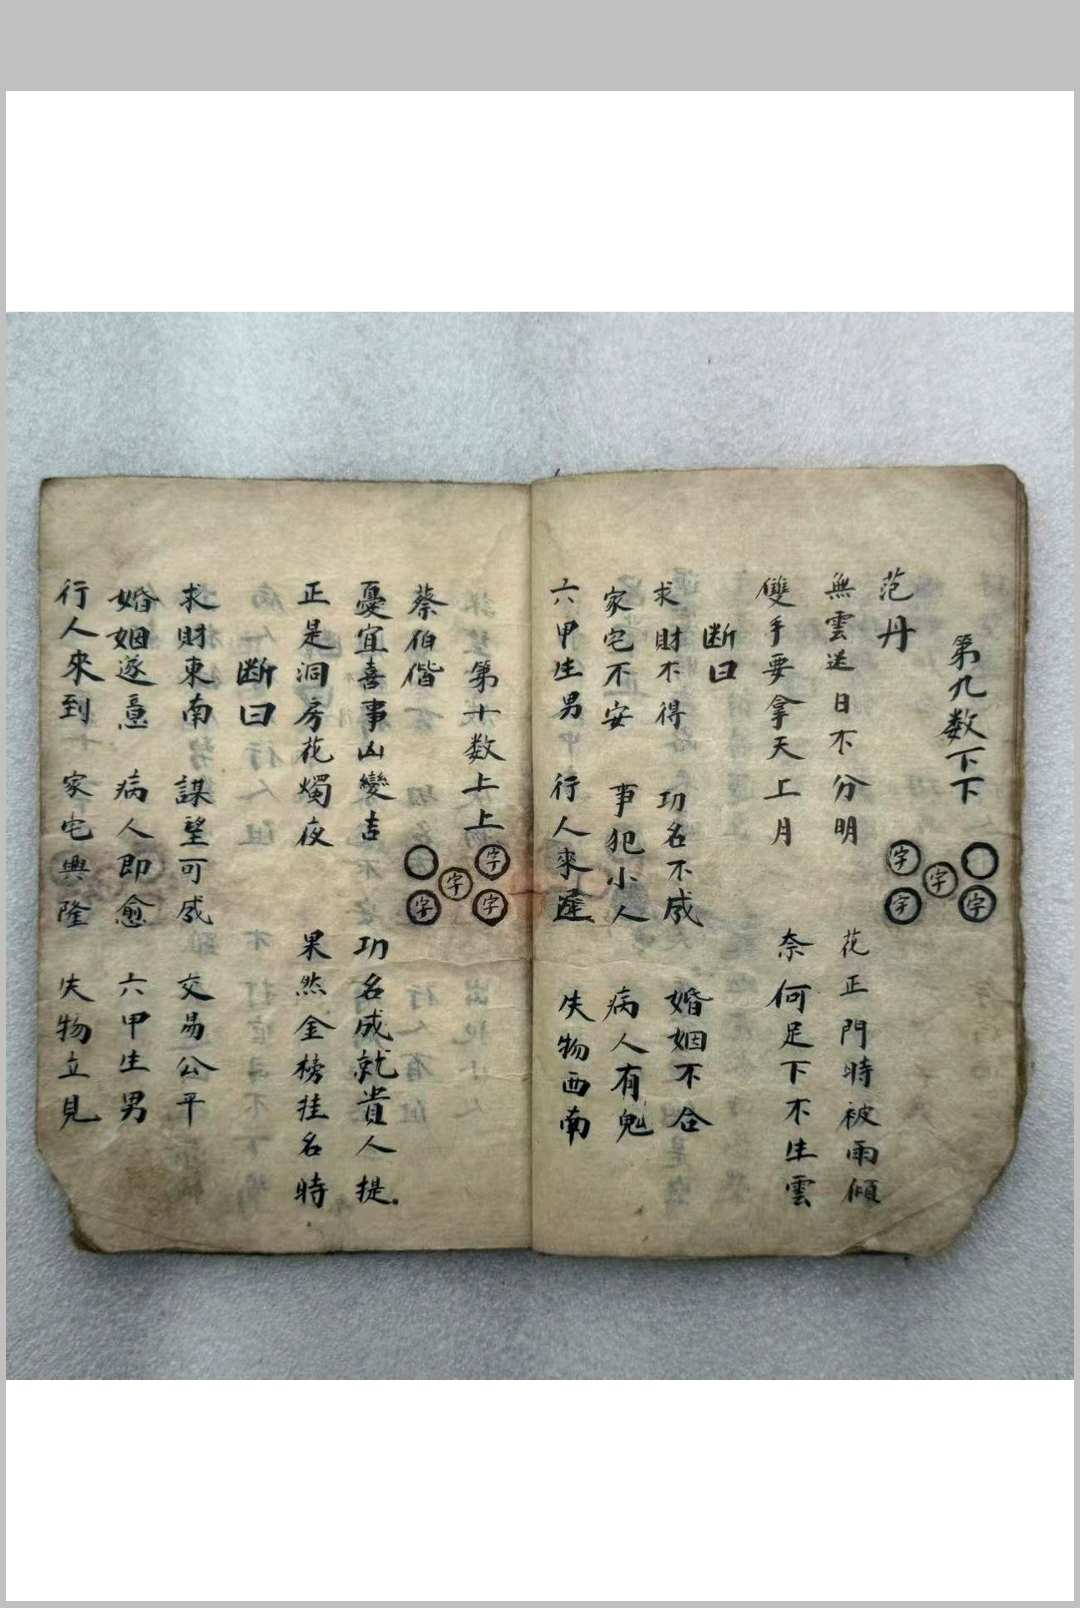 第九数下下
字
字
字
字
范丹
無雲送日不分明 花正門時被雨傾
雙手要拿天上月 奈何足下不生雲
断曰
求財不得 功名不成 婚姻不合
家宅不安 事犯小人 病人有鬼
六甲生男 行人來遲 失物西南
第十数上上
字
字
字
字
蔡伯偕
憂宜喜事凶變吉 功名成就貴人提
正是洞房花燭夜 果然金榜挂名時
断曰
求財東南 謀望可成 交易公平
婚姻遂意 病人即愈 六甲生男
行人來到 家宅興隆 失物立見